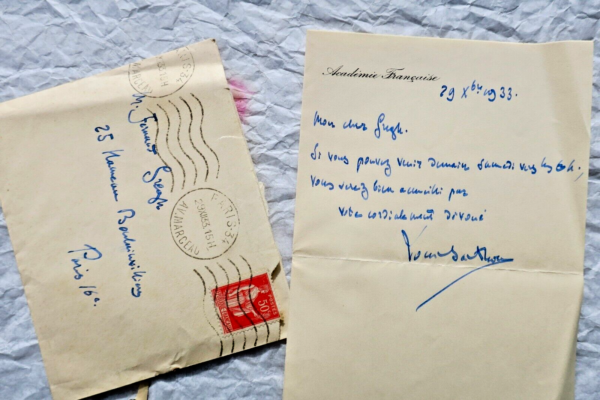 Académie Française
29 Xbre 1933.
Mon cher Gregh.
Si vous pouvez venir demain samedi vers les 6 h.,
vous serez bien accueilli par
votre cordialement dévoué
Louis Barthou
M. Fernand Gregh
25 Hameau Boulainvilliers
Paris 16e.
PARIS-34
AV. MARCEAU
POSTES
50c